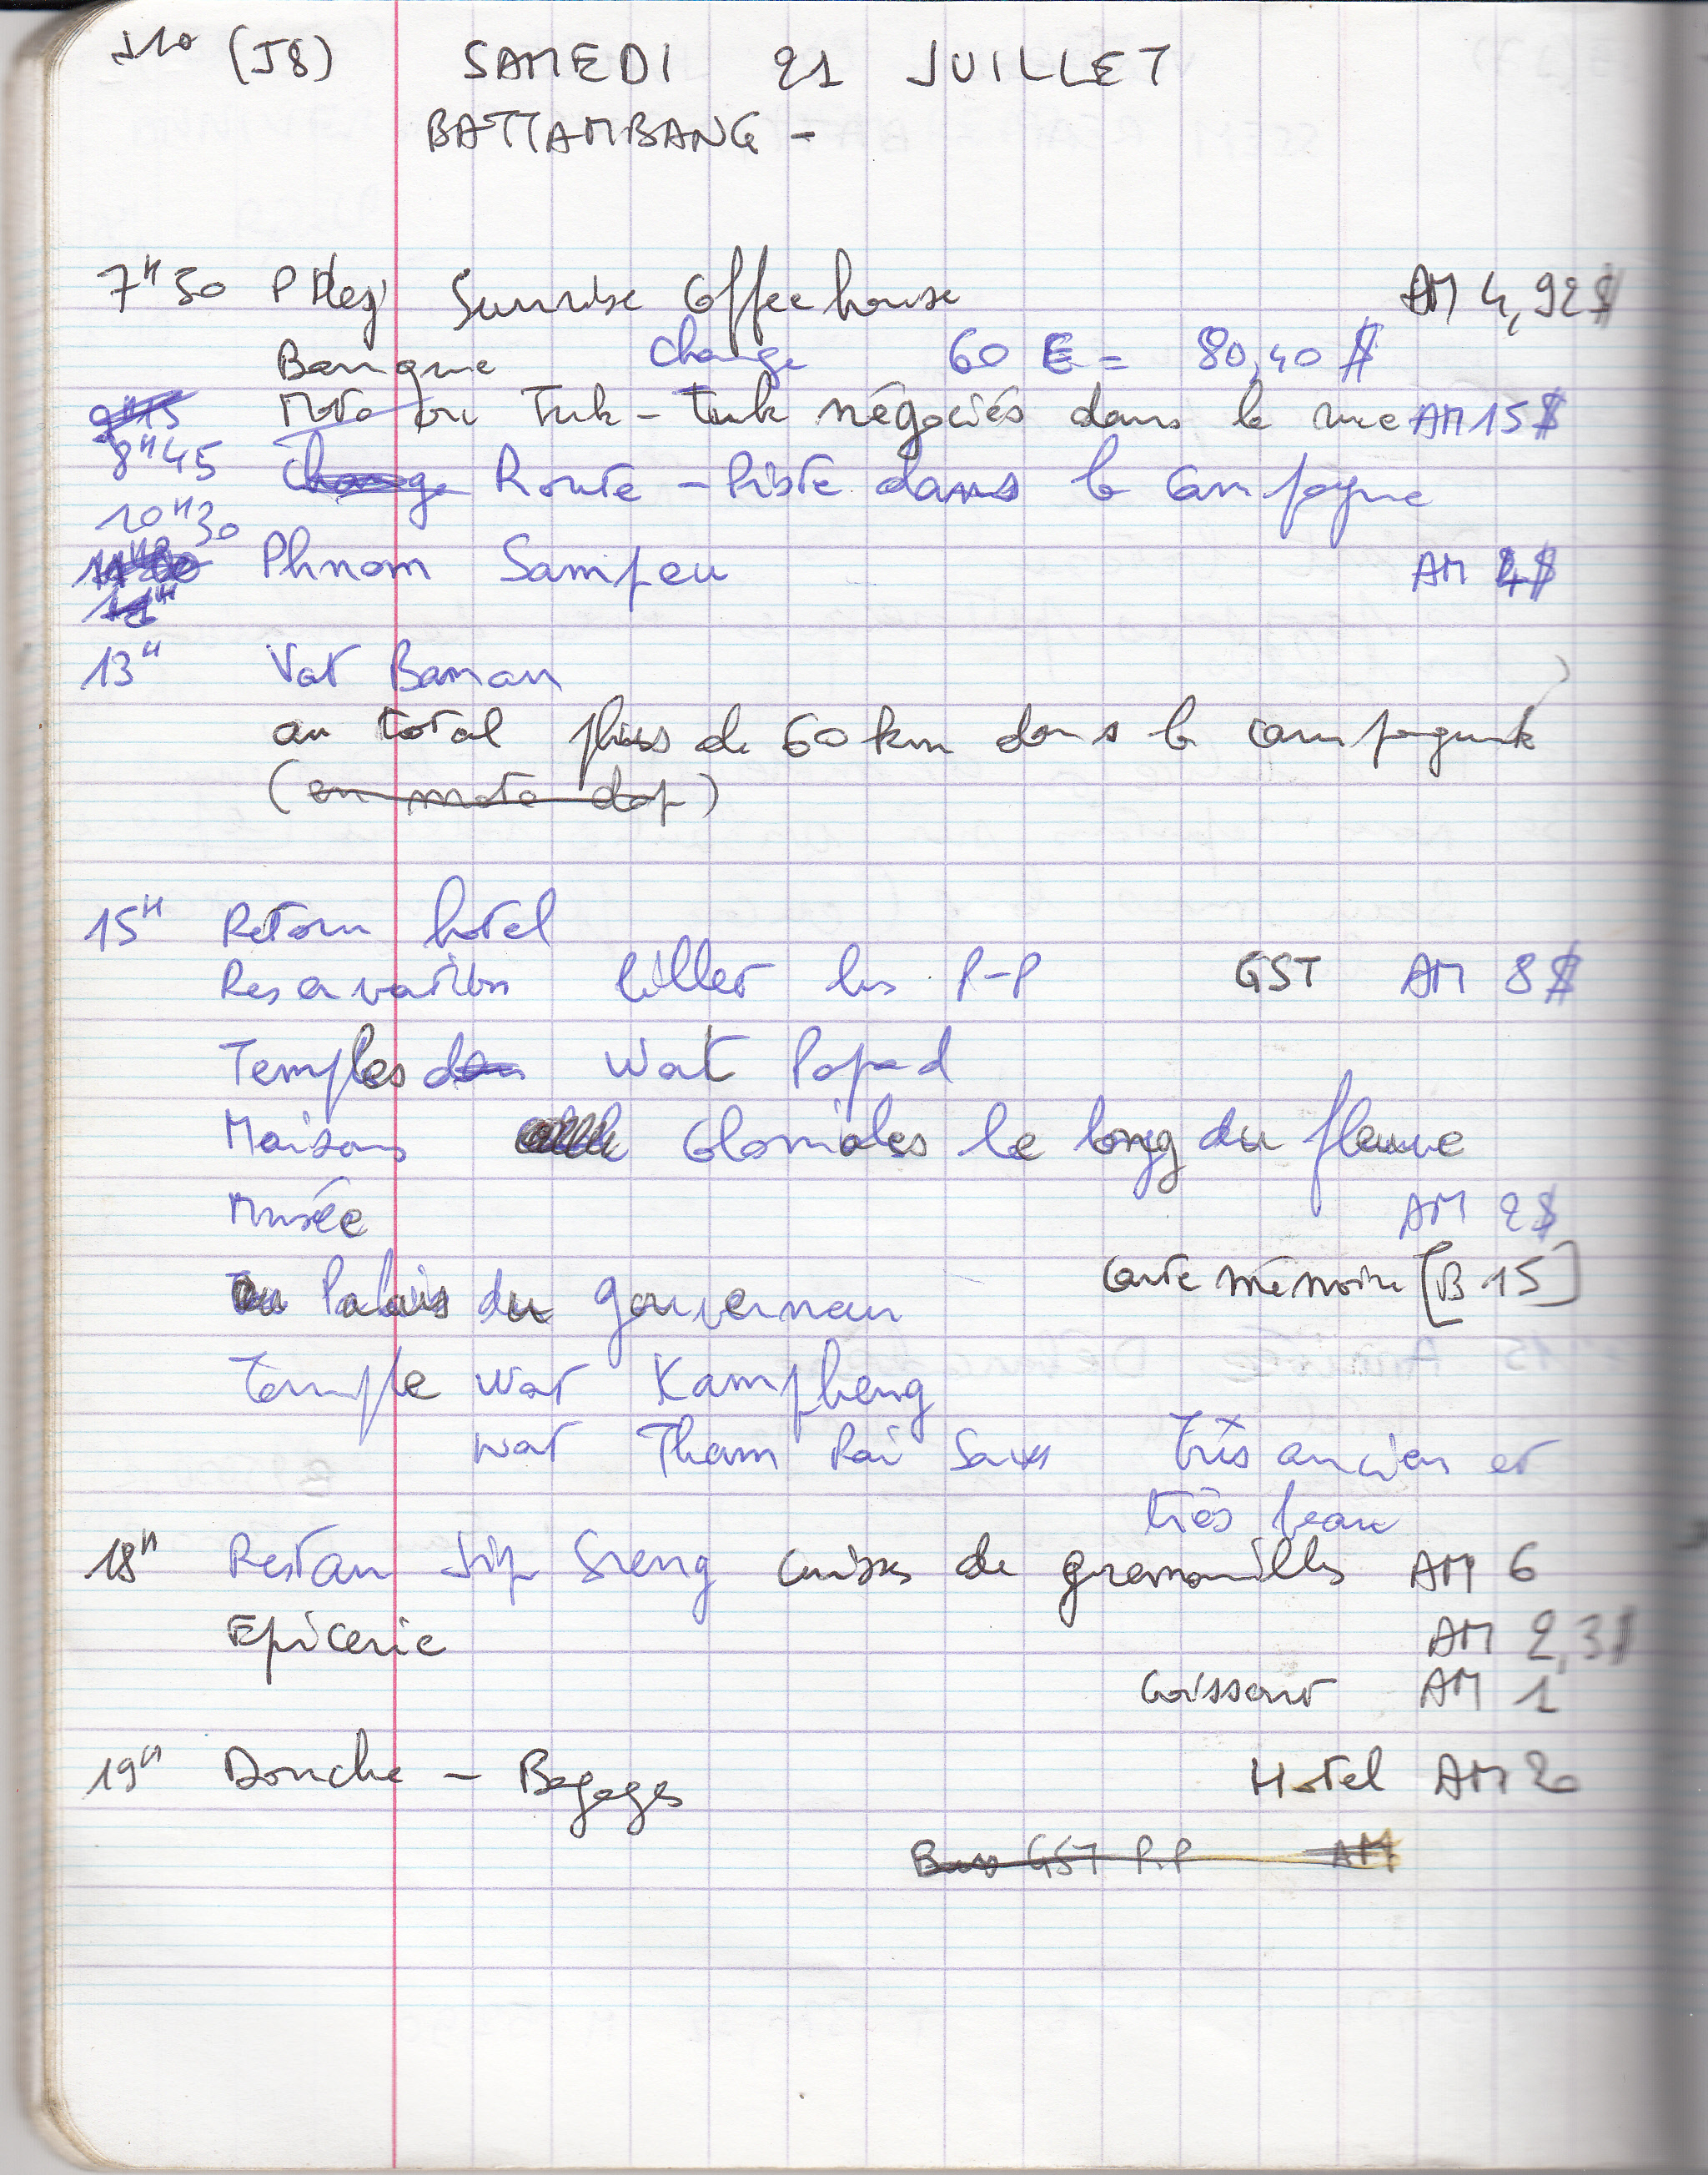 J10 (J8) SAMEDI 21 JUILLET
BATTAMBANG -
7H30 P Dej Sunrise Coffee house AM 4,92$
Banque change 60 € = 80,40 $
9H15 Moto ou Tuk-tuk négociés dans la rue AM 15$
8H45 Change Route - Piste dans la campagne
10H30
Phnom Sampeu AM $
13H Vat Banan
au total plus de 60 km dans la campagne
(en moto dop)
15H Retour hotel
Reservation billet bus P-P GST AM 8$
Temples Wat Popad
Maisons coloniales le long du fleuve
Musée AM 2$
Palais du gouverneur Carte mémoire [B 15]
Temple Wat Kampheng
Wat Tham Rai Saw très ancien et
très beau
18H Restau Sreng cuisses de grenouilles AM 6
Epicerie AM 2,3$
Croissant AM 1
19H Douche - Bagages Hotel AM 20
Bus GST P.P AM